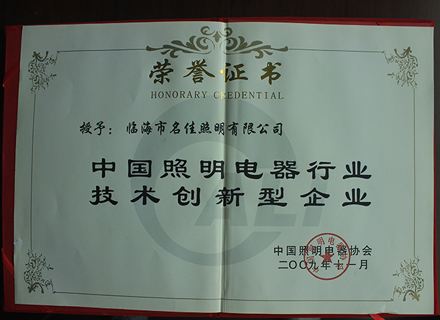 荣誉证书
HONORARY CREDENTIAL
授予：临海市名佳照明有限公司
中国照明电器行业
技术创新型企业
中国照明电器协会
二〇〇九年十一月